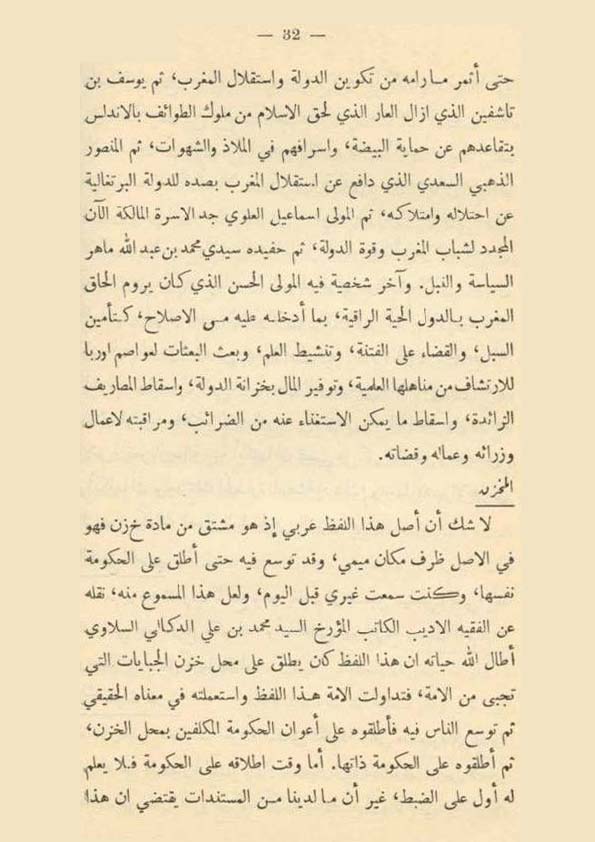 — 32 —
حتى أثمر مارامه من تكوين الدولة واستقلال المغرب، ثم يوسف بن
تاشفين الذي ازال العار الذي لحق الاسلام من ملوك الطوائف بالاندلس
بتقاعدهم عن حماية البيضة، واسرافهم في الملاذ والشهوات، ثم المنصور
الذهبي السعدي الذي دافع عن استقلال المغرب بصده للدولة البرتغالية
عن احتلاله وامتلاكه، ثم المولى اسماعيل العلوي جد الاسرة المالكة الآن
المجدد لشباب المغرب وقوة الدولة، ثم حفيده سيدي محمد بن عبد الله ماهر
السياسة والنبل. وآخر شخصية فيه المولى الحسن الذي كان يروم الحاق
المغرب بالدول الحية الراقية، بما أدخله عليه من الاصلاح، كتأمين
السبل، والقضاء على الفتنة، وتنشيط العلم، وبعث البعثات لعواصم اوربا
للارتشاف من مناهلها العلمية، وتوفير المال بخزانة الدولة، واسقاط المصاريف
الزائدة، واسقاط ما يمكن الاستغناء عنه من الضرائب، ومراقبته لاعمال
وزرائه وعماله وقضاته.
المخزن
لا شك أن أصل هذا اللفظ عربي إذ هو مشتق من مادة خزن فهو
في الاصل ظرف مكان ميمي، وقد توسع فيه حتى أطلق على الحكومة
نفسها، وكنت سمعت غيري قبل اليوم، ولعل هذا المسموع منه، نقله
عن الفقيه الاديب الكاتب المؤرخ السيد محمد بن علي الدكالي السلاوي
أطال الله حياته ان هذا اللفظ كان يطلق على محل خزن الجبايات التي
تجبى من الامة، فتداولت الامة هذا اللفظ واستعملته في معناه الحقيقي
ثم توسع الناس فيه فأطلقوه على أعوان الحكومة المكلفين بمحل الخزن،
ثم أطلقوه على الحكومة ذاتها. أما وقت اطلاقه على الحكومة فلا يعلم
له أول على الضبط، غير أن ما لدينا من المستندات يقتضي ان هذا